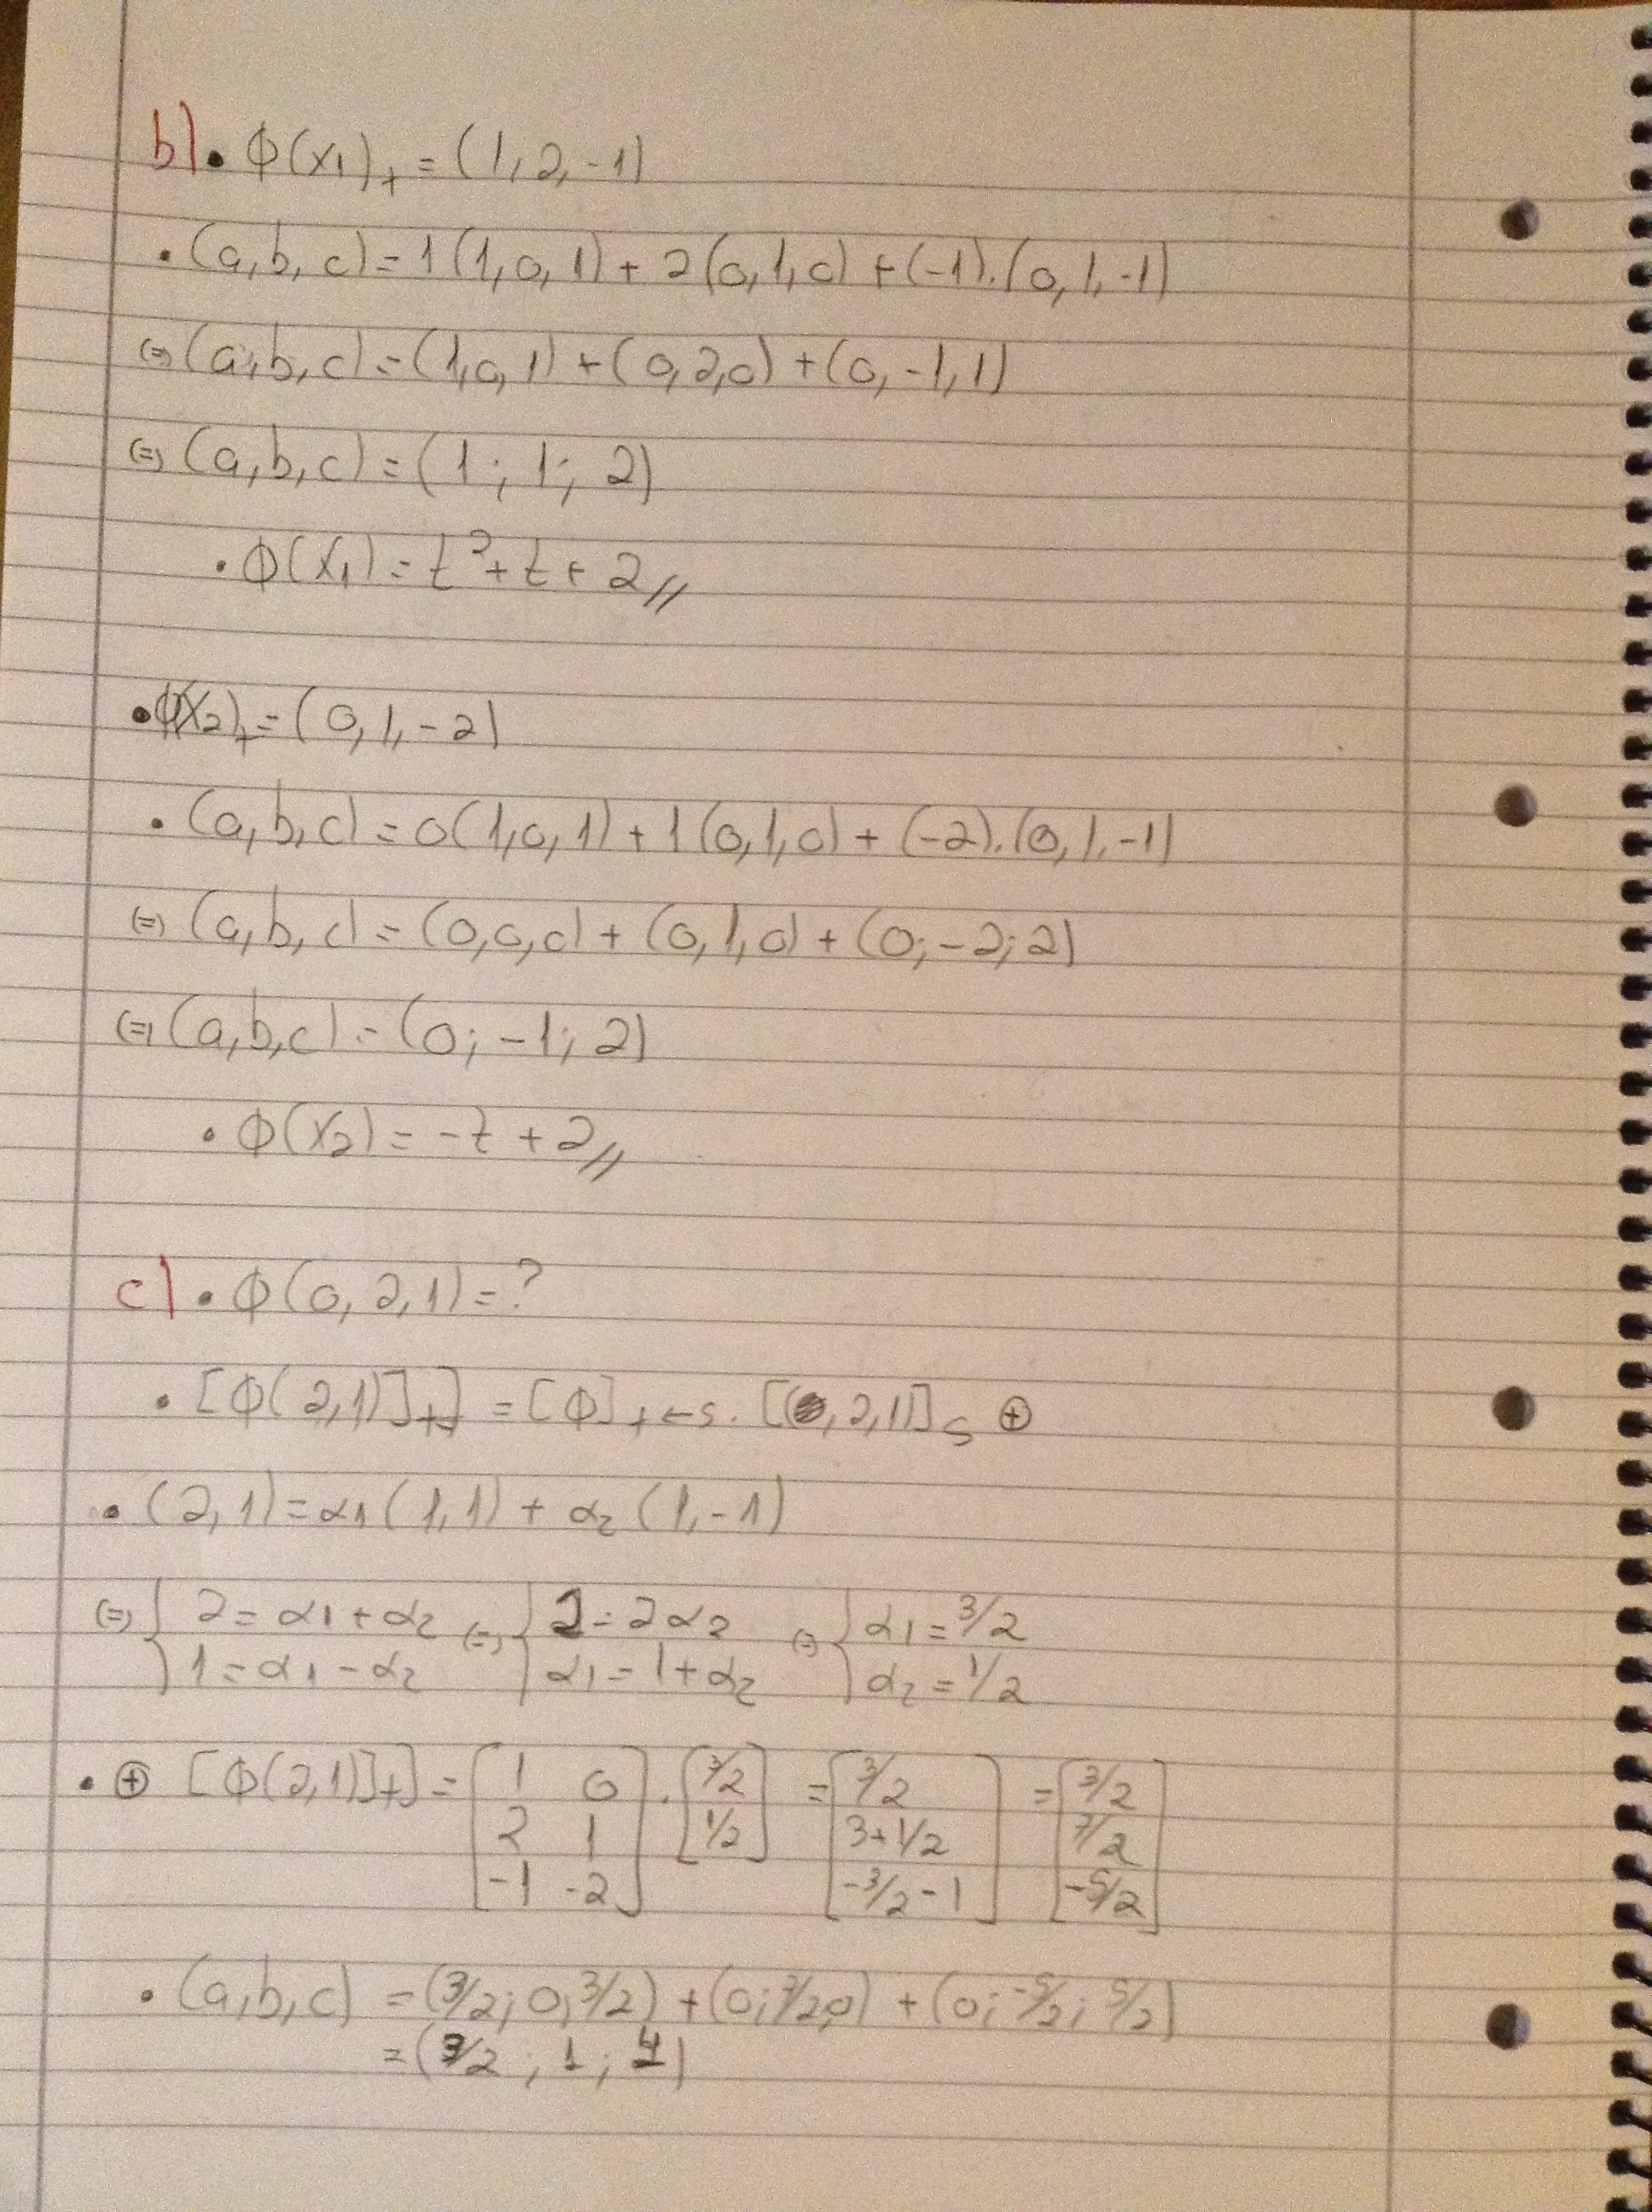 b) • ϕ(x₁)ₜ = (1, 2, -1)
• (a, b, c) = 1 (1, 0, 1) + 2 (0, 1, 0) + (-1) . (0, 1, -1)
(=) (a, b, c) = (1, 0, 1) + (0, 2, 0) + (0, -1, 1)
(=) (a, b, c) = (1 ; 1 ; 2)
• ϕ(x₁) = t² + t + 2 //
• ϕ(x₂)ₜ = (0, 1, -2)
• (a, b, c) = 0 (1, 0, 1) + 1 (0, 1, 0) + (-2) . (0, 1, -1)
(=) (a, b, c) = (0, 0, 0) + (0, 1, 0) + (0 ; -2 ; 2)
(=) (a, b, c) = (0 ; -1 ; 2)
• ϕ(x₂) = -t + 2 //
c) • ϕ(0, 2, 1) = ?
• [ϕ(2,1)]ₜ] = [ϕ]ₜ←ₛ . [( , 2, 1)]ₛ ⊕
• (2, 1) = α₁ (1, 1) + α₂ (1, -1)
(=) { 2 = α₁ + α₂ (=) { 2 = 2α₂ (=) { α₁ = 3/2
1 = α₁ - α₂ α₁ = 1 + α₂ α₂ = 1/2
• ⊕ [ϕ(2,1)]ₜ] = [ 1 0 ] . [ 3/2 ] = [ 3/2 ] = [ 3/2 ]
2 1 1/2 3+1/2 7/2
-1 -2 -3/2 - 1 -5/2
• (a, b, c) = (3/2 ; 0, 3/2) + (0 ; 7/2, 0) + (0 ; -5/2 ; 5/2)
= (3/2 ; 1 ; 4)